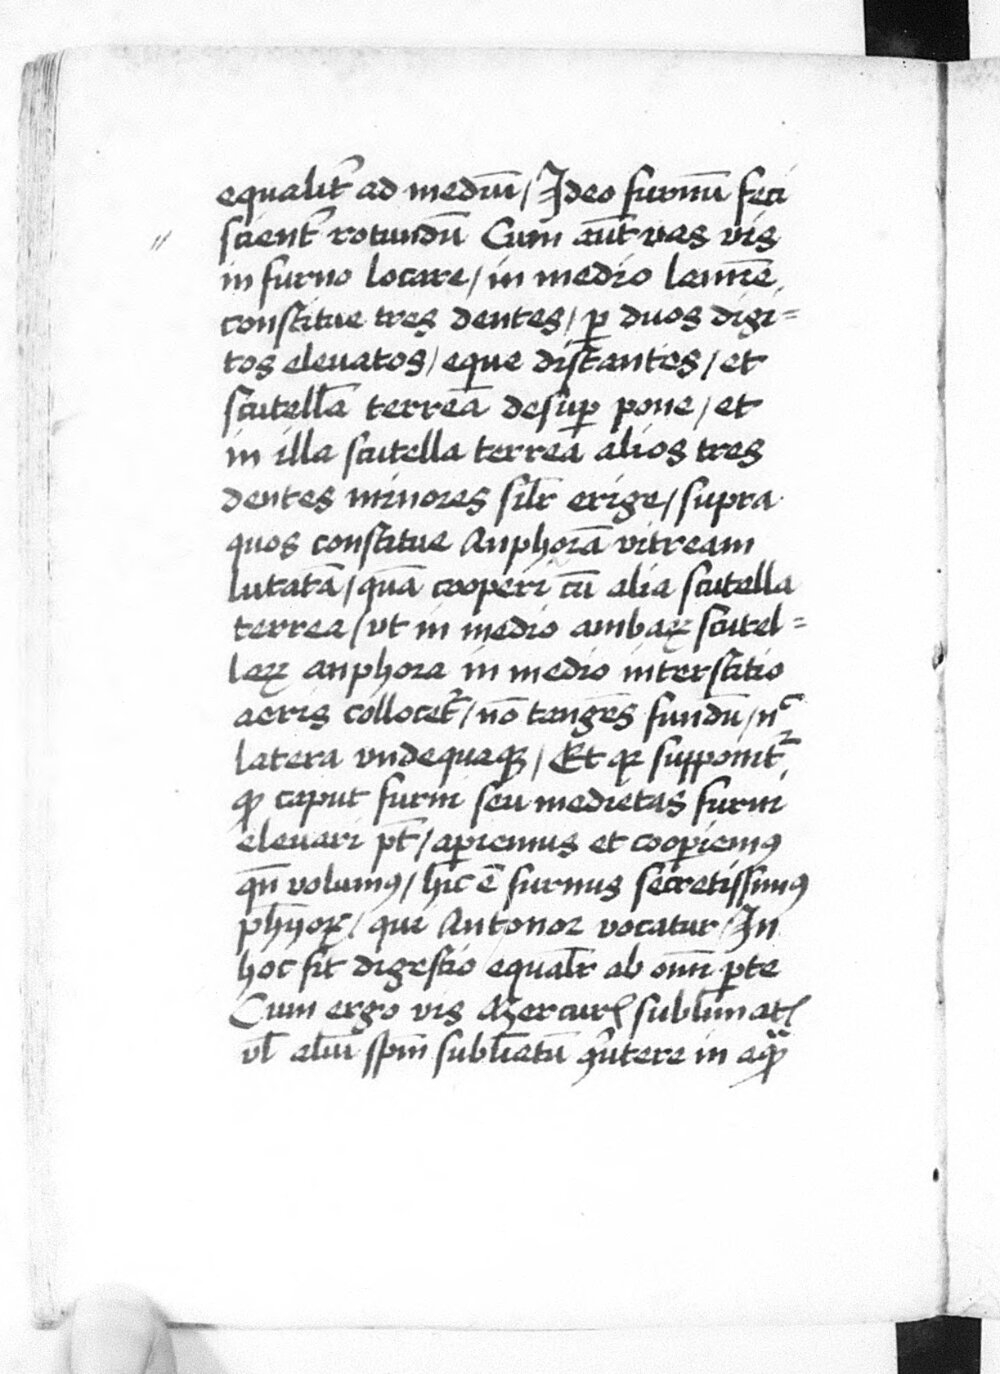 equalit̃ ad mediũ / Ideo furnũ feci
scient̃ rotundũ Cum aũt vas vis
in furno locare / in medio lamiẽ
constitue tres dentes / ꝑ duos digi=
tos eleuatos / eque distantes / et
scutellã terreã desuꝑ pone / et
in illa scutella terrea alios tres
dentes minores silr̃ erige / supra
quos constitue Anphorã vitream
lutatã / quã cooperi cũ alia scutella
terrea / vt in medio ambaꝝ scutel=
laꝝ anphora in medio interstitio
aeris collocet̃ / nõ tangẽs fundũ / nᶜ
latera vndequaqꝫ / Et qꝛ supponit̃
ꝙ caput furni seu medietas furni
eleuari pt̃ / aꝑiemus et cooꝑiemꝰ
qñ volumꝰ / hic ẽ furnus secretissimꝰ
ph̃ijoꝝ / qui Antonor vocatur / In
hoc fit digestio equalr̃ ab om̃i ꝑte
Cum ergo vis Mercurꝭ sublimatꝭ
vl̃ aliũ sp̃m subl̃iatũ ꝯũtere in aqꝫ